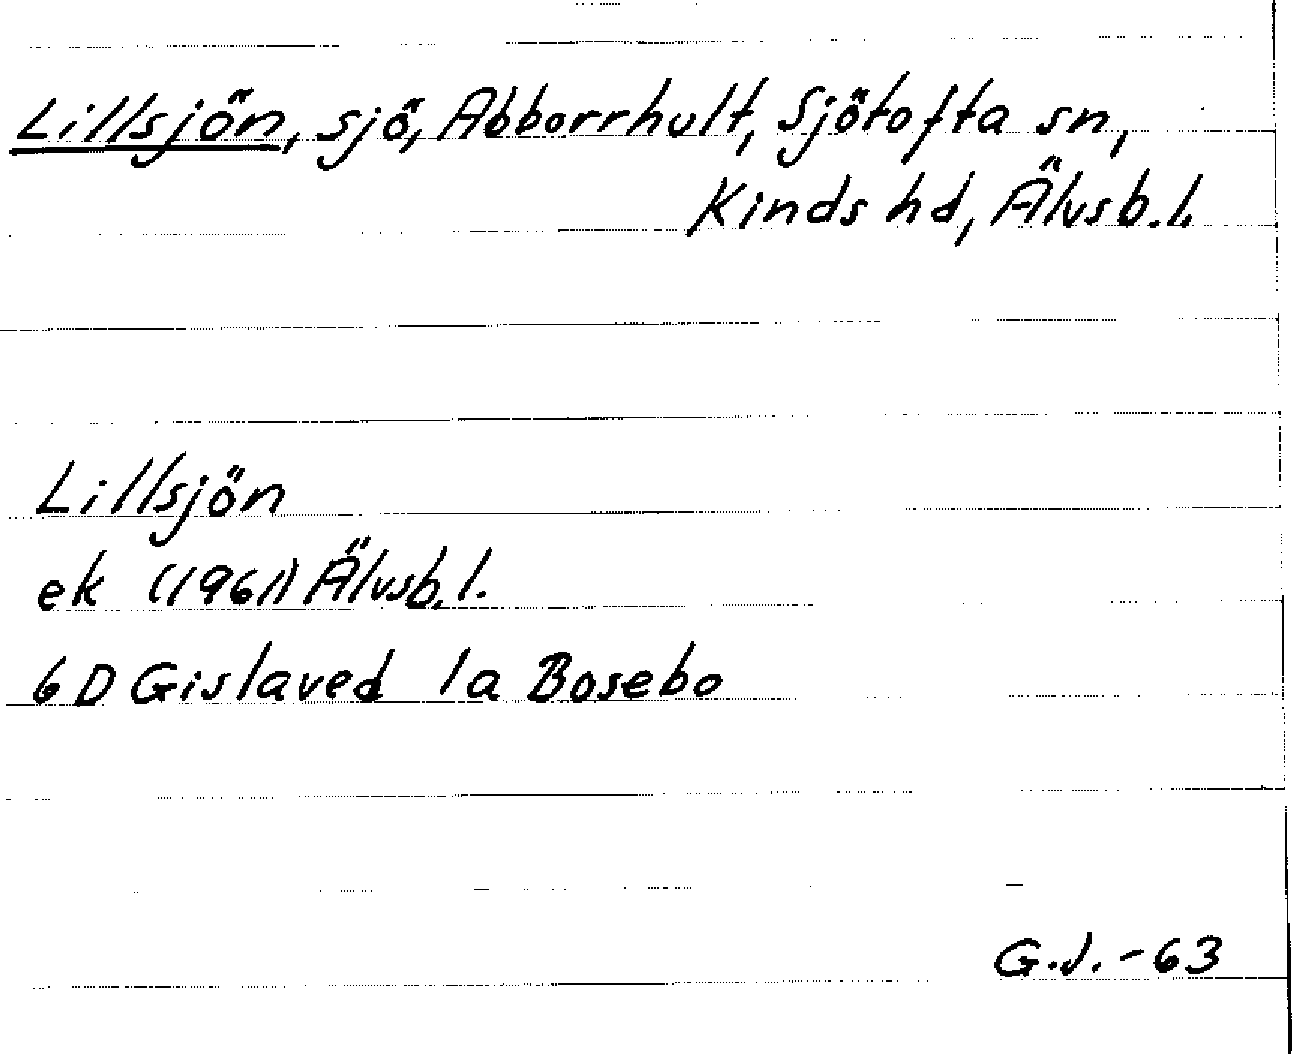 Lillsjön, sjö, Abborrhult, Sjötofta sn,
Kinds hd, Älvsb.l.
Lillsjön
ek (1961) Älvsb.l.
6D Gislaved 1a Bosebo
G.J.-63